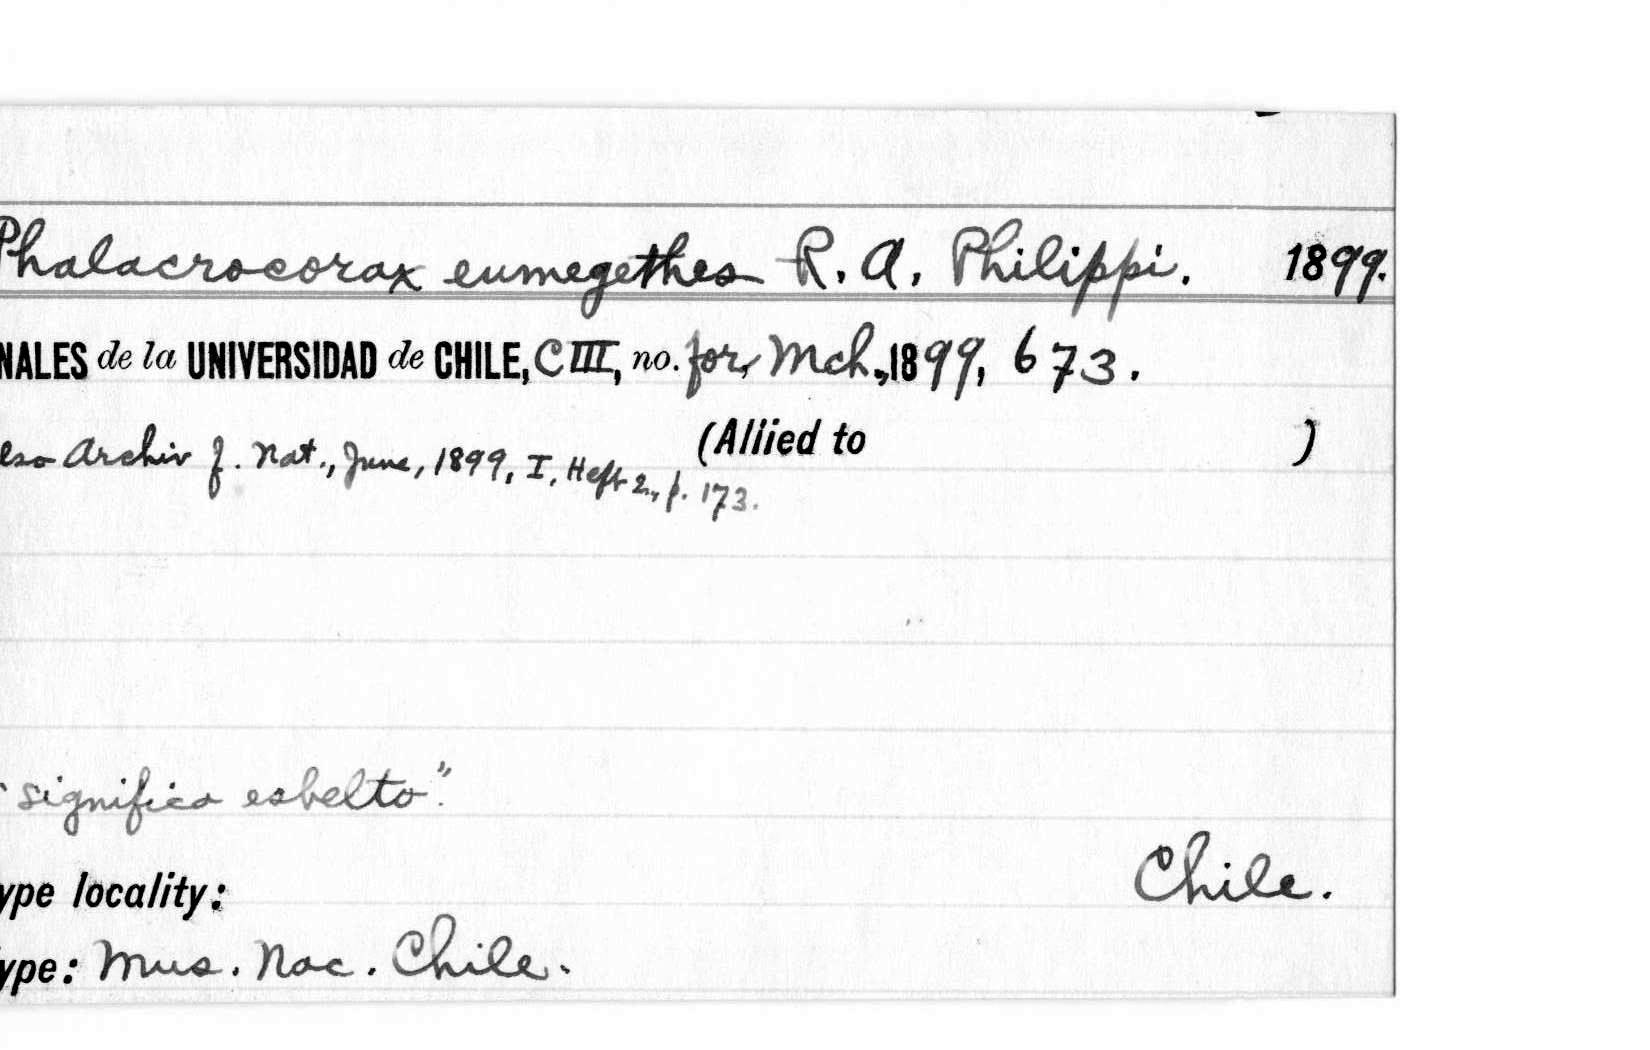 Phalacrocorax eumegethes R. A. Philippi. 1899.
NALES de la UNIVERSIDAD de CHILE, CIII, no. for, Mch., 1899, 673.
(Allied to )
Archiv f. Nat., June, 1899, I, Heft 2, p. 173.
significa esbelto".
ype locality: Chile.
ype: Mus. Nac. Chile.